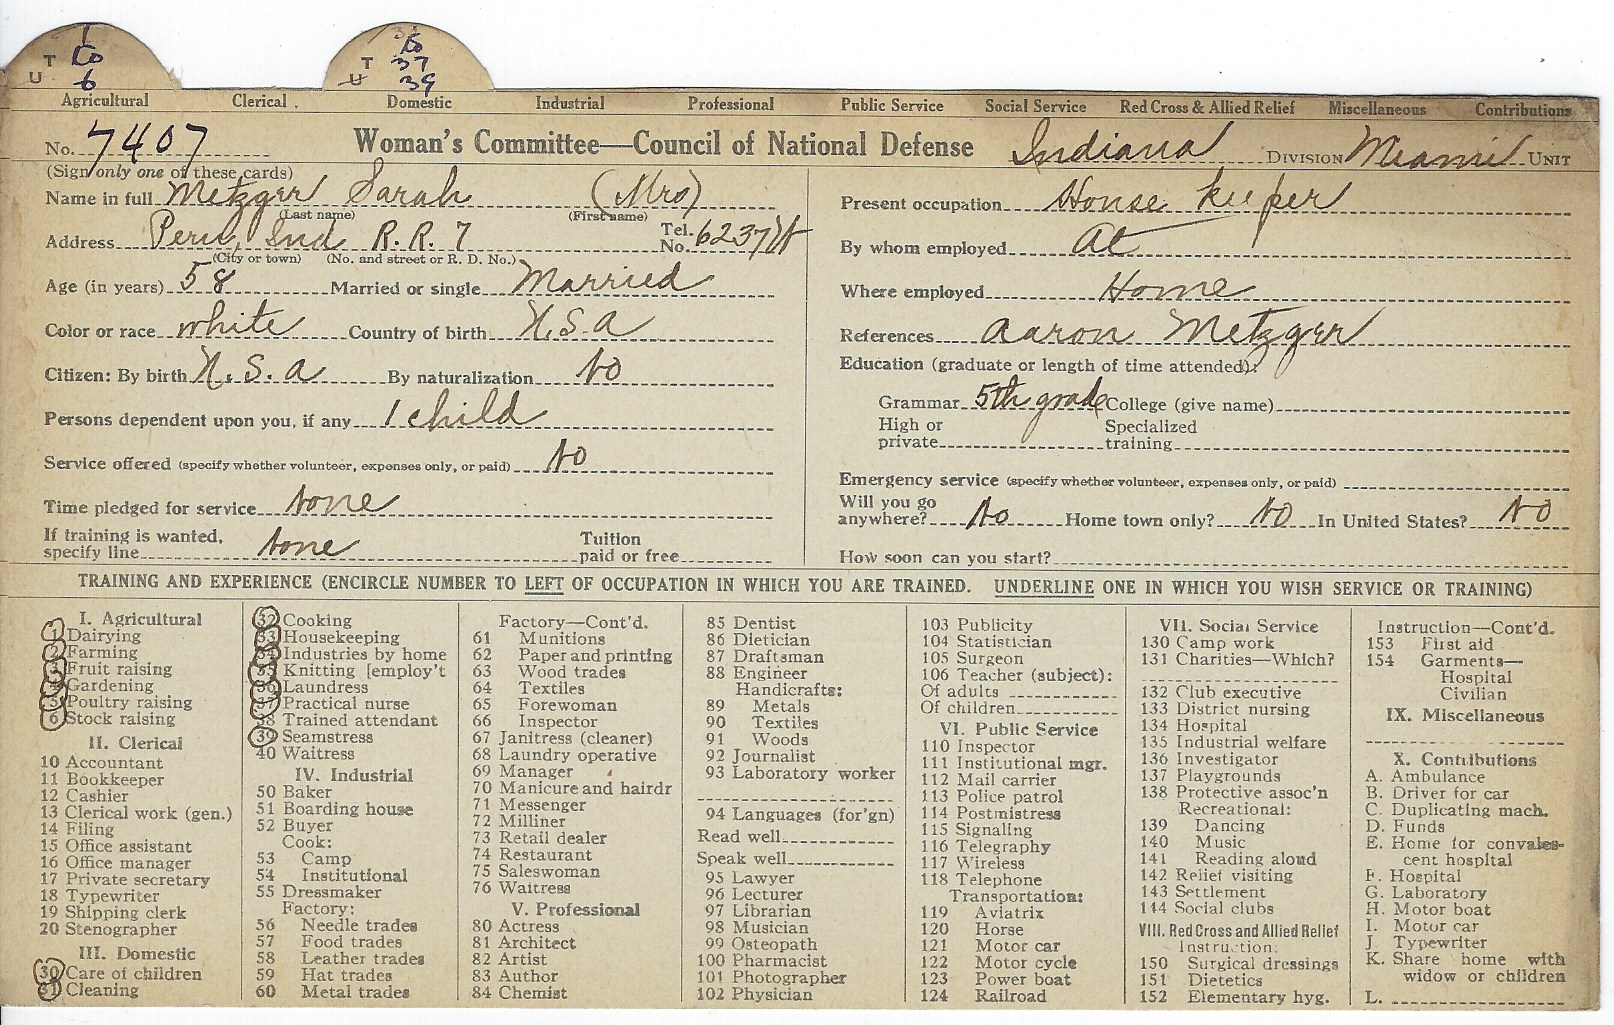 1
T to
U 6
T to
37
U 39
Agricultural Clerical Domestic Industrial Professional Public Service Social Service Red Cross & Allied Relief Miscellaneous Contributions
No. 7407 Woman's Committee—Council of National Defense Indiana DIVISION Miami UNIT
(Sign only one of these cards)
Name in full Metzger Sarah (Mrs)
(Last name) (First name)
Address Peru, Ind R. R. 7 Tel. No. 6237
(City or town) (No. and street or R. D. No.)
Age (in years) 58 Married or single Married
Color or race white Country of birth U.S.A
Citizen: By birth U.S.A By naturalization No
Persons dependent upon you, if any 1 child
Service offered (specify whether volunteer, expenses only, or paid) No
Time pledged for service None
If training is wanted, specify line None Tuition paid or free
Present occupation House keeper
By whom employed At
Where employed Home
References Aaron Metzger
Education (graduate or length of time attended):
Grammar 5th grade College (give name)
High or private Specialized training
Emergency service (specify whether volunteer, expenses only, or paid)
Will you go anywhere? No Home town only? No In United States? No
How soon can you start?
TRAINING AND EXPERIENCE (ENCIRCLE NUMBER TO LEFT OF OCCUPATION IN WHICH YOU ARE TRAINED. UNDERLINE ONE IN WHICH YOU WISH SERVICE OR TRAINING)
I. Agricultural
1 Dairying
2 Farming
3 Fruit raising
4 Gardening
5 Poultry raising
6 Stock raising
II. Clerical
10 Accountant
11 Bookkeeper
12 Cashier
13 Clerical work (gen.)
14 Filing
15 Office assistant
16 Office manager
17 Private secretary
18 Typewriter
19 Shipping clerk
20 Stenographer
III. Domestic
30 Care of children
31 Cleaning
32 Cooking
33 Housekeeping
34 Industries by home
35 Knitting [employ't
36 Laundress
37 Practical nurse
38 Trained attendant
39 Seamstress
40 Waitress
IV. Industrial
50 Baker
51 Boarding house
52 Buyer
Cook:
53 Camp
54 Institutional
55 Dressmaker
Factory:
56 Needle trades
57 Food trades
58 Leather trades
59 Hat trades
60 Metal trades
Factory—Cont'd.
61 Munitions
62 Paper and printing
63 Wood trades
64 Textiles
65 Forewoman
66 Inspector
67 Janitress (cleaner)
68 Laundry operative
69 Manager
70 Manicure and hairdr
71 Messenger
72 Milliner
73 Retail dealer
74 Restaurant
75 Saleswoman
76 Waitress
V. Professional
80 Actress
81 Architect
82 Artist
83 Author
84 Chemist
85 Dentist
86 Dietician
87 Draftsman
88 Engineer
Handicrafts:
89 Metals
90 Textiles
91 Woods
92 Journalist
93 Laboratory worker
94 Languages (for'gn)
Read well
Speak well
95 Lawyer
96 Lecturer
97 Librarian
98 Musician
99 Osteopath
100 Pharmacist
101 Photographer
102 Physician
103 Publicity
104 Statistician
105 Surgeon
106 Teacher (subject):
Of adults
Of children
VI. Public Service
110 Inspector
111 Institutional mgr.
112 Mail carrier
113 Police patrol
114 Postmistress
115 Signaling
116 Telegraphy
117 Wireless
118 Telephone
Transportation:
119 Aviatrix
120 Horse
121 Motor car
122 Motor cycle
123 Power boat
124 Railroad
VII. Social Service
130 Camp work
131 Charities—Which?
132 Club executive
133 District nursing
134 Hospital
135 Industrial welfare
136 Investigator
137 Playgrounds
138 Protective assoc'n
Recreational:
139 Dancing
140 Music
141 Reading aloud
142 Relief visiting
143 Settlement
144 Social clubs
VIII. Red Cross and Allied Relief
Instruction:
150 Surgical dressings
151 Dietetics
152 Elementary hyg.
Instruction—Cont'd.
153 First aid
154 Garments—
Hospital
Civilian
IX. Miscellaneous
X. Contributions
A. Ambulance
B. Driver for car
C. Duplicating mach.
D. Funds
E. Home for convales-
cent hospital
F. Hospital
G. Laboratory
H. Motor boat
I. Motor car
J. Typewriter
K. Share home with
widow or children
L.